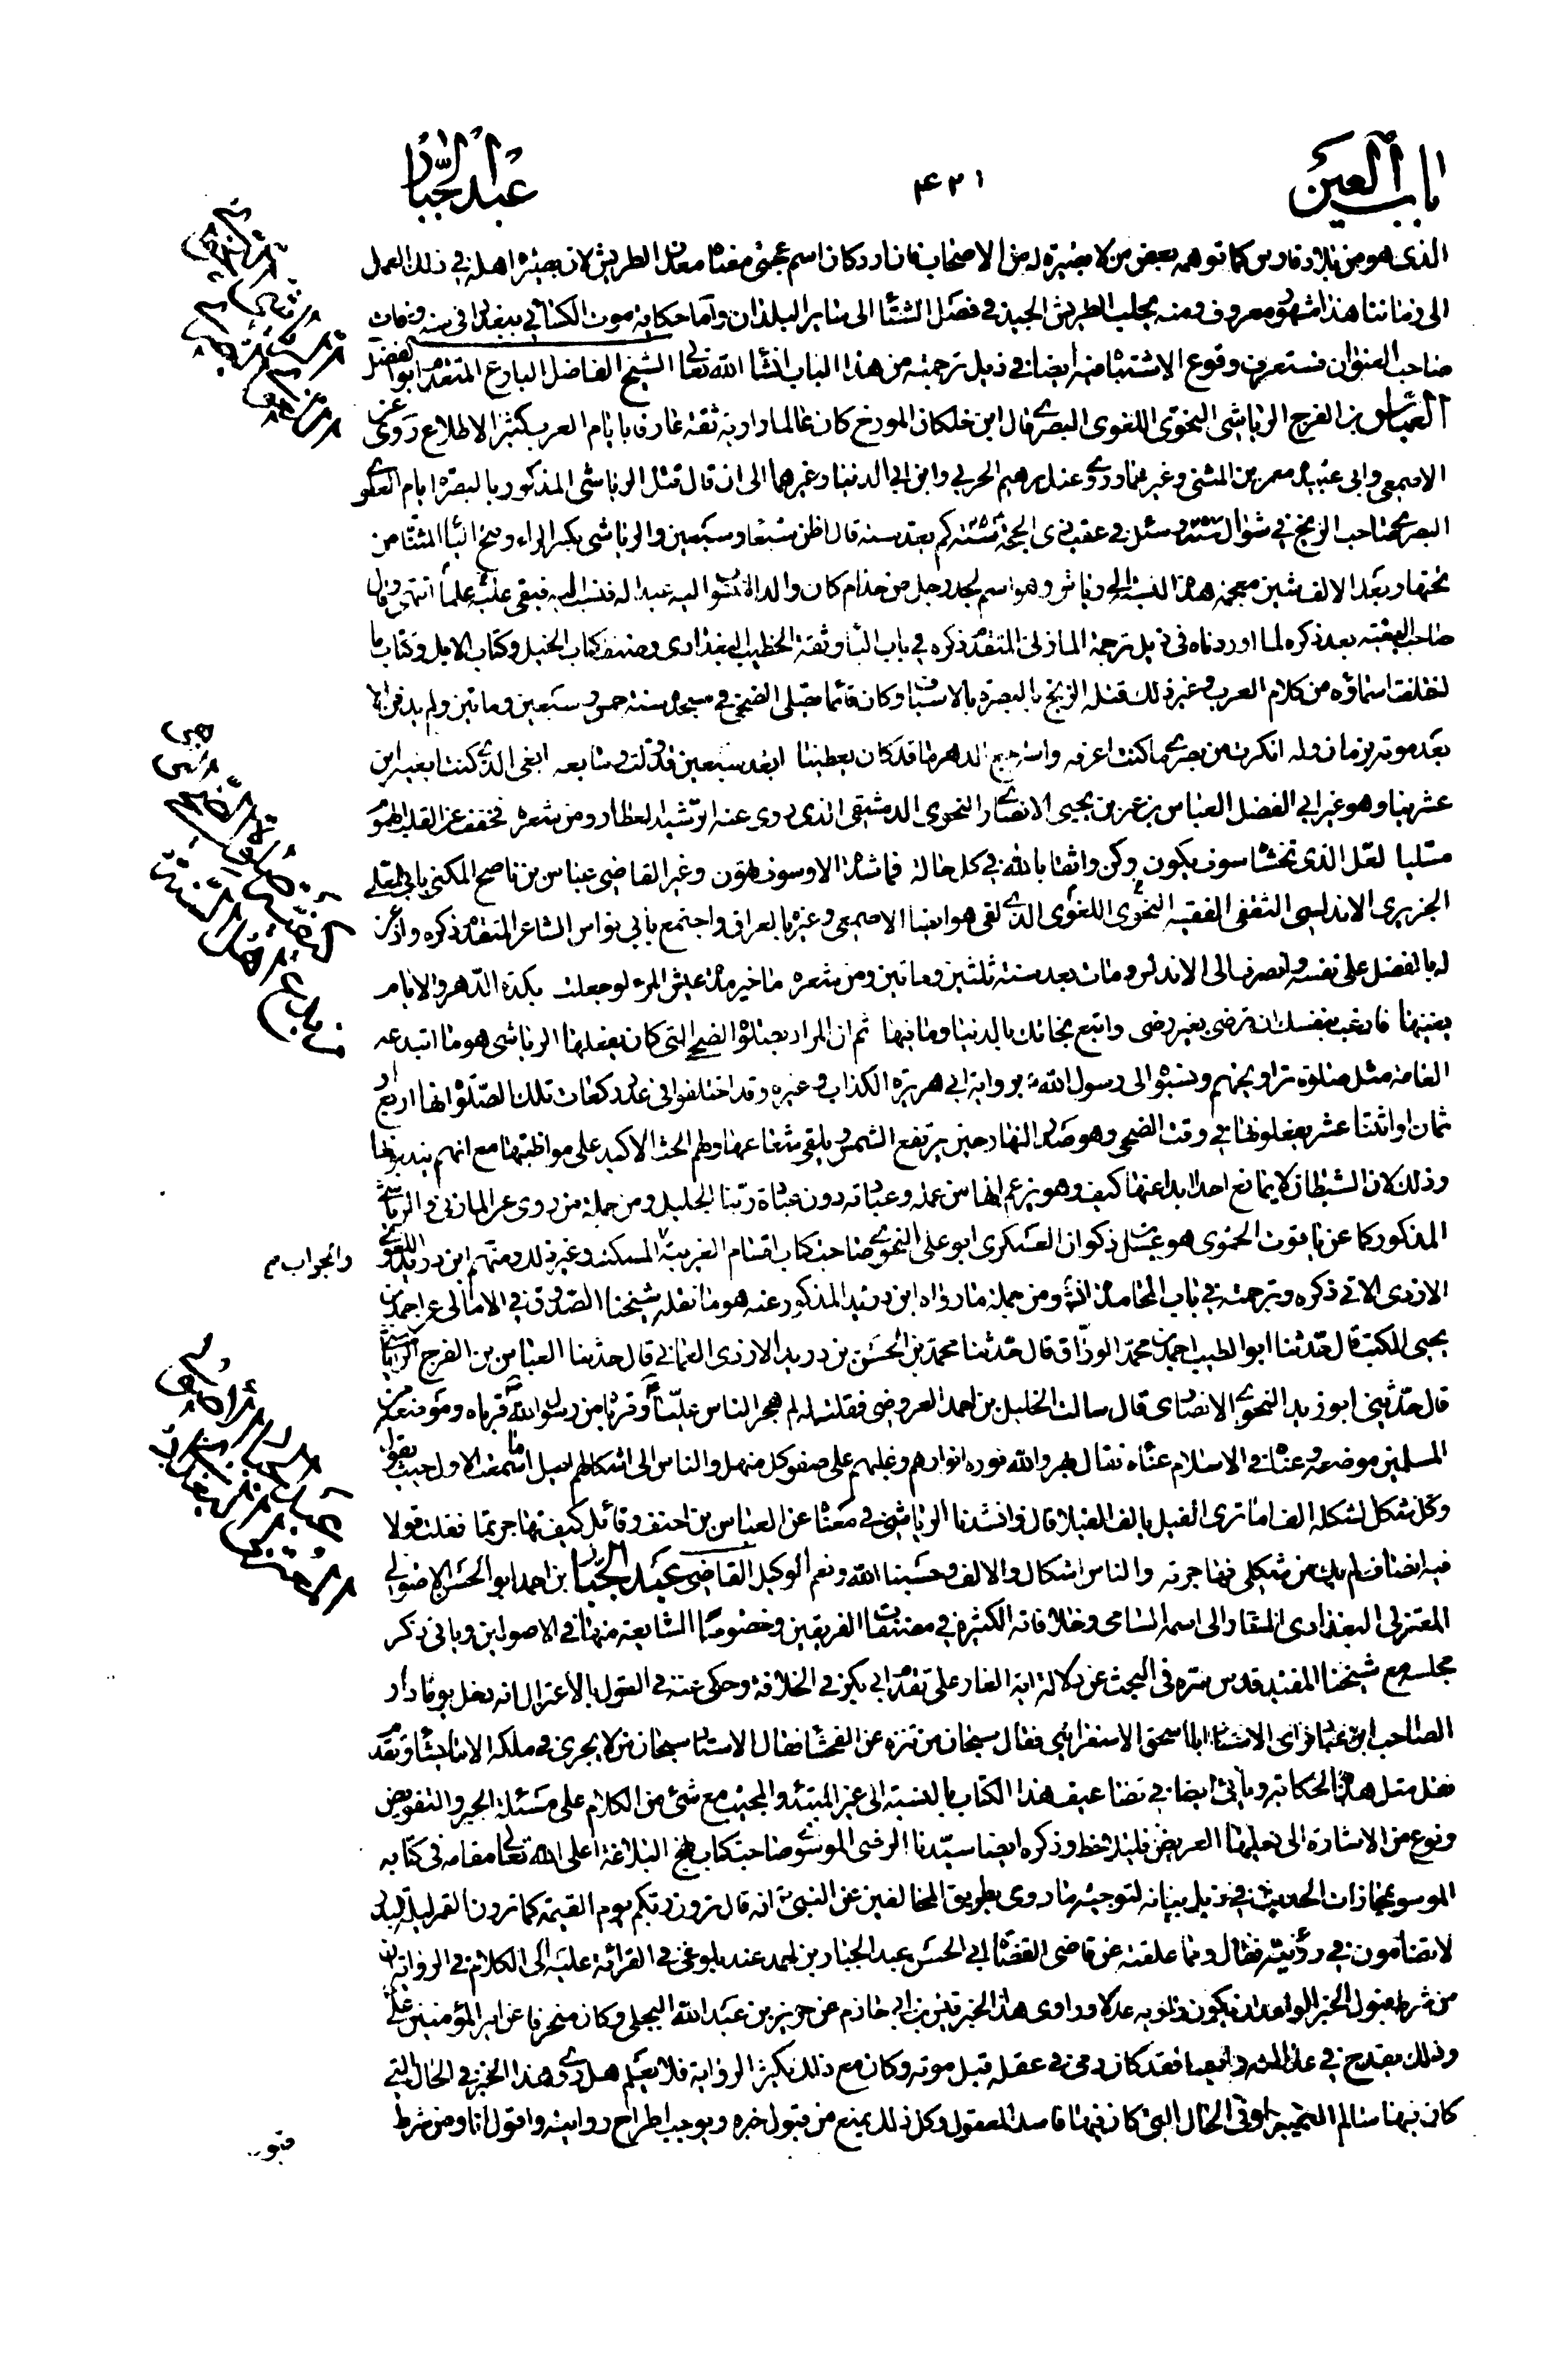 باب العين
٤٢١
عبد الجبار
الذى هو من بلاد فارس كما توهمه بعض من لا بصيرة له من الاصحاب فان اردكان اسم عجمى معناه معدن الطريش لان بصيرة اهله فى ذلك العمل
الى زماننا هذا مشهور معروف ومنه يجلب الطريش الجيد فى فصل الشتاء الى ساير البلدان واما حكاية موت الكسائى ببغداد فى سنة وفات
صاحب العنوان فستعرف وقوع الاشتباه فيه ايضا فى ذيل ترجمته من هذا الباب انشاء الله تعالى الشيخ الفاضل البارع المتقدم ابو الفضل
العباس بن الفرج الرياشى النحوى اللغوى البصرى قال ابن خلكان المورخ كان عالما راوية ثقة عارفا بايام العرب كثير الاطلاع روى عن
الاصمعى وابى عبيدة معمر بن المثنى وغيرهما وروى عنه ابرهيم الحربى وابن ابى الدنيا وغيرهما الى ان قال قتل الرياشى المذكور بالبصرة ايام العلوى
البصرى صاحب الزنج فى شوال سنة وسئل فى عقب ذى الحجة سنة كم يعد سنه قال اظن سبعا وسبعين والرياشى بكسر الراء وفتح الياء المثناة من
تحتها وبعد الالف شين معجمة هذه النسبة الى رياش وهو اسم لجد رجل من جذام كان والد المنسوب اليه عبدا له فنسب اليه فبقى عليه علما انتهى وقال
صاحب البغية بعد ذكره لما اوردناه فى ذيل ترجمة المازنى المتقدم ذكره فى باب الباء وثقه الخطيب البغدادى وصنف كتاب الخيل وكتاب الابل وكتاب ما
اختلفت اسماؤه من كلام العرب وغير ذلك قتله الزنج بالبصرة بالاسياف وكان قائما يصلى الضحى فى مسجده سنة خمس وسبعين وماتين ولم يدفن الا
بعد موته بزمان وله انكرت من بصرى ما كنت اعرفه واسترجع الدهر ما قد كان يعطينا ابعد سبعين قد ولت وسابعه ابغى الذى كنت ابغيه ابن
عشرينا وهو غير ابى الفضل العباس بن عمر بن يحيى الانصارى النحوى الدمشقى الذى روى عنه الرشيد العطار ومن شعره فخفف عن القلب الهموم
مسليا لعل الذى تخشاه سوف يكون وكن واثقا بالله فى كل حالة فما شدة الا وسوف تهون وغير القاضى عباس بن ناصح المكنى بابى المعلى
الجزيرى الاندلسى الثقفى الفقيه النحوى اللغوى الذى لقى هو ايضا الاصمعى وغيره بالعراق واجتمع بابى نواس الشاعر المتقدم ذكره واذعن
له بالفضل على نفسه وانصرف الى الاندلس ومات بعد سنة ثلثين وماتين ومن شعره ما خير مدة عيش المرء لو جعلت كمدة الدهر والايام
يفنيها فارغب بنفسك ان ترضى بغير رضى وابتع نجاتك بالدنيا وما فيها ثم ان المراد بصلوة الضحى التى كان يفعلها الرياشى هو ما ابتدعه
العامة مثل صلوة تراويحهم ونسبوا الى رسول الله برواية ابى هريرة الكذاب وغيره وقد اختلفوا فى عدد ركعات تلك الصلوة انها اربع او
ثمان او اثنتا عشر يفعلونها فى وقت الضحى وهو صدر النهار حين يرتفع الشمس ويلقى شعاعها ولهم الحث الاكيد على مواظبتها مع انهم يندبونها
وذلك لان الشيطان لا يمانع احدا بدا عنها كيف وهو يزعم انها من عمله وعبادته دون عبادة ربنا الجليل ومن جملة من روى عن المازنى والرياشى
المذكور كما عن ياقوت الحموى هو عسل بن ذكوان العسكرى ابو على النحوى صاحب كتاب اقسام العربية المسكت وغير ذلك ومنهم ابن دريد اللغوى
والجواب م
الازدى الاتى ذكره وترجمته فى باب المحامدة انشاء ومن جملة ما رواه ابن دريد المذكور عنه هو ما نقله شيخنا الصدوق فى الامالى عن احمد بن
يحيى المكتب قال حدثنا ابو الطيب احمد بن محمد الوراق قال حدثنا محمد بن الحسن بن دريد الازدى العمانى قال حدثنا العباس بن الفرج الرياشى
قال حدثنى ابو زيد النحوى الانصارى قال سالت الخليل بن احمد العروضى فقلت له لم هجر الناس عليا وقرباه من رسول الله قرباه وموضعه من
المسلمين موضعه وعناه فى الاسلام عناه فقال بهر والله نوره انوارهم وغلبهم على صفو كل منهل والناس الى اشكالهم اميل اما سمعت الاول حيث يقول
وكل شكل لشكله الف اما ترى الفيل يالف الفيلا قال وانشدنا الرياشى فى معناه عن العباس بن احنف وقائل كيف تهاجرتما فقلت قولا
فيه انصاف لم يك من شكلى ففاجرته والناس اشكال والاف وحسبنا الله ونعم الوكيل القاضى عبد الجبار بن احمد ابو الحسن الاصولى
المعتزلى البغدادى المشار الى اسمه السامى وخلافاته الكثيرة فى مصنفات الفريقين وخصوصا الشايعة منها فى الاصولين وياتى ذكر
مجلسه مع شيخنا المفيد قدس سره فى البحث عن دلالة اية الغار على تقدم ابى بكر فى الخلافة وحكى عنه فى القول بالاعتزال انه دخل يوما دار
الصاحب ابن عباد فراى الاستاد ابا اسحق الاسفراينى فقال سبحان من تنزه عن الفحشاء فقال الاستاد سبحان من لا يجرى فى ملكه الا ما يشاء وتقدم
نقل مثل هذه الحكاية وياتى ايضا فى تضاعيف هذا الكتاب بالنسبة الى غير المبتدء والمجيب مع شئ من الكلام على مسئلة الجبر والتفويض
ونوع من الاشارة الى ذيلهما العريض فليلاحظ وذكره ايضا سيدنا الرضى الموسوى صاحب كتاب نهج البلاغة اعلى الله تعالى مقامه فى كتابه
الموسوم بمجازات الحديث فى ذيل بيانه لتوجيه ما روى بطريق المخالفين عن النبى انه قال ترون ربكم يوم القيمة كما ترون القمر ليلة البدر
لا تضامون فى رؤيته فقال ومما علقته عن قاضى القضاة ابى الحسن عبد الجبار بن احمد عند بلوغى فى القرائة عليه الى الكلام فى الرواية ان
من شرط قبول الخبر الواحد ان يكون راويه عدلا وراوى هذا الخبر قيس بن ابى حازم عن جرير بن عبد الله البجلى وكان منحرفا عن امير المؤمنين على
وذلك يقدح فى عدالته وايضا فقد كان رمى فى عقله قبل موته وكان مع ذلك يكثر الرواية فلا يعلم هل روى هذا الخبر فى الحال التى
كان فيها سالم التمييز او فى الحال التى كان فيها فاسد المعقول وكل ذلك يمنع من قبول خبره ويوجب اطراح روايته واقول انا ومن شرط
قبول